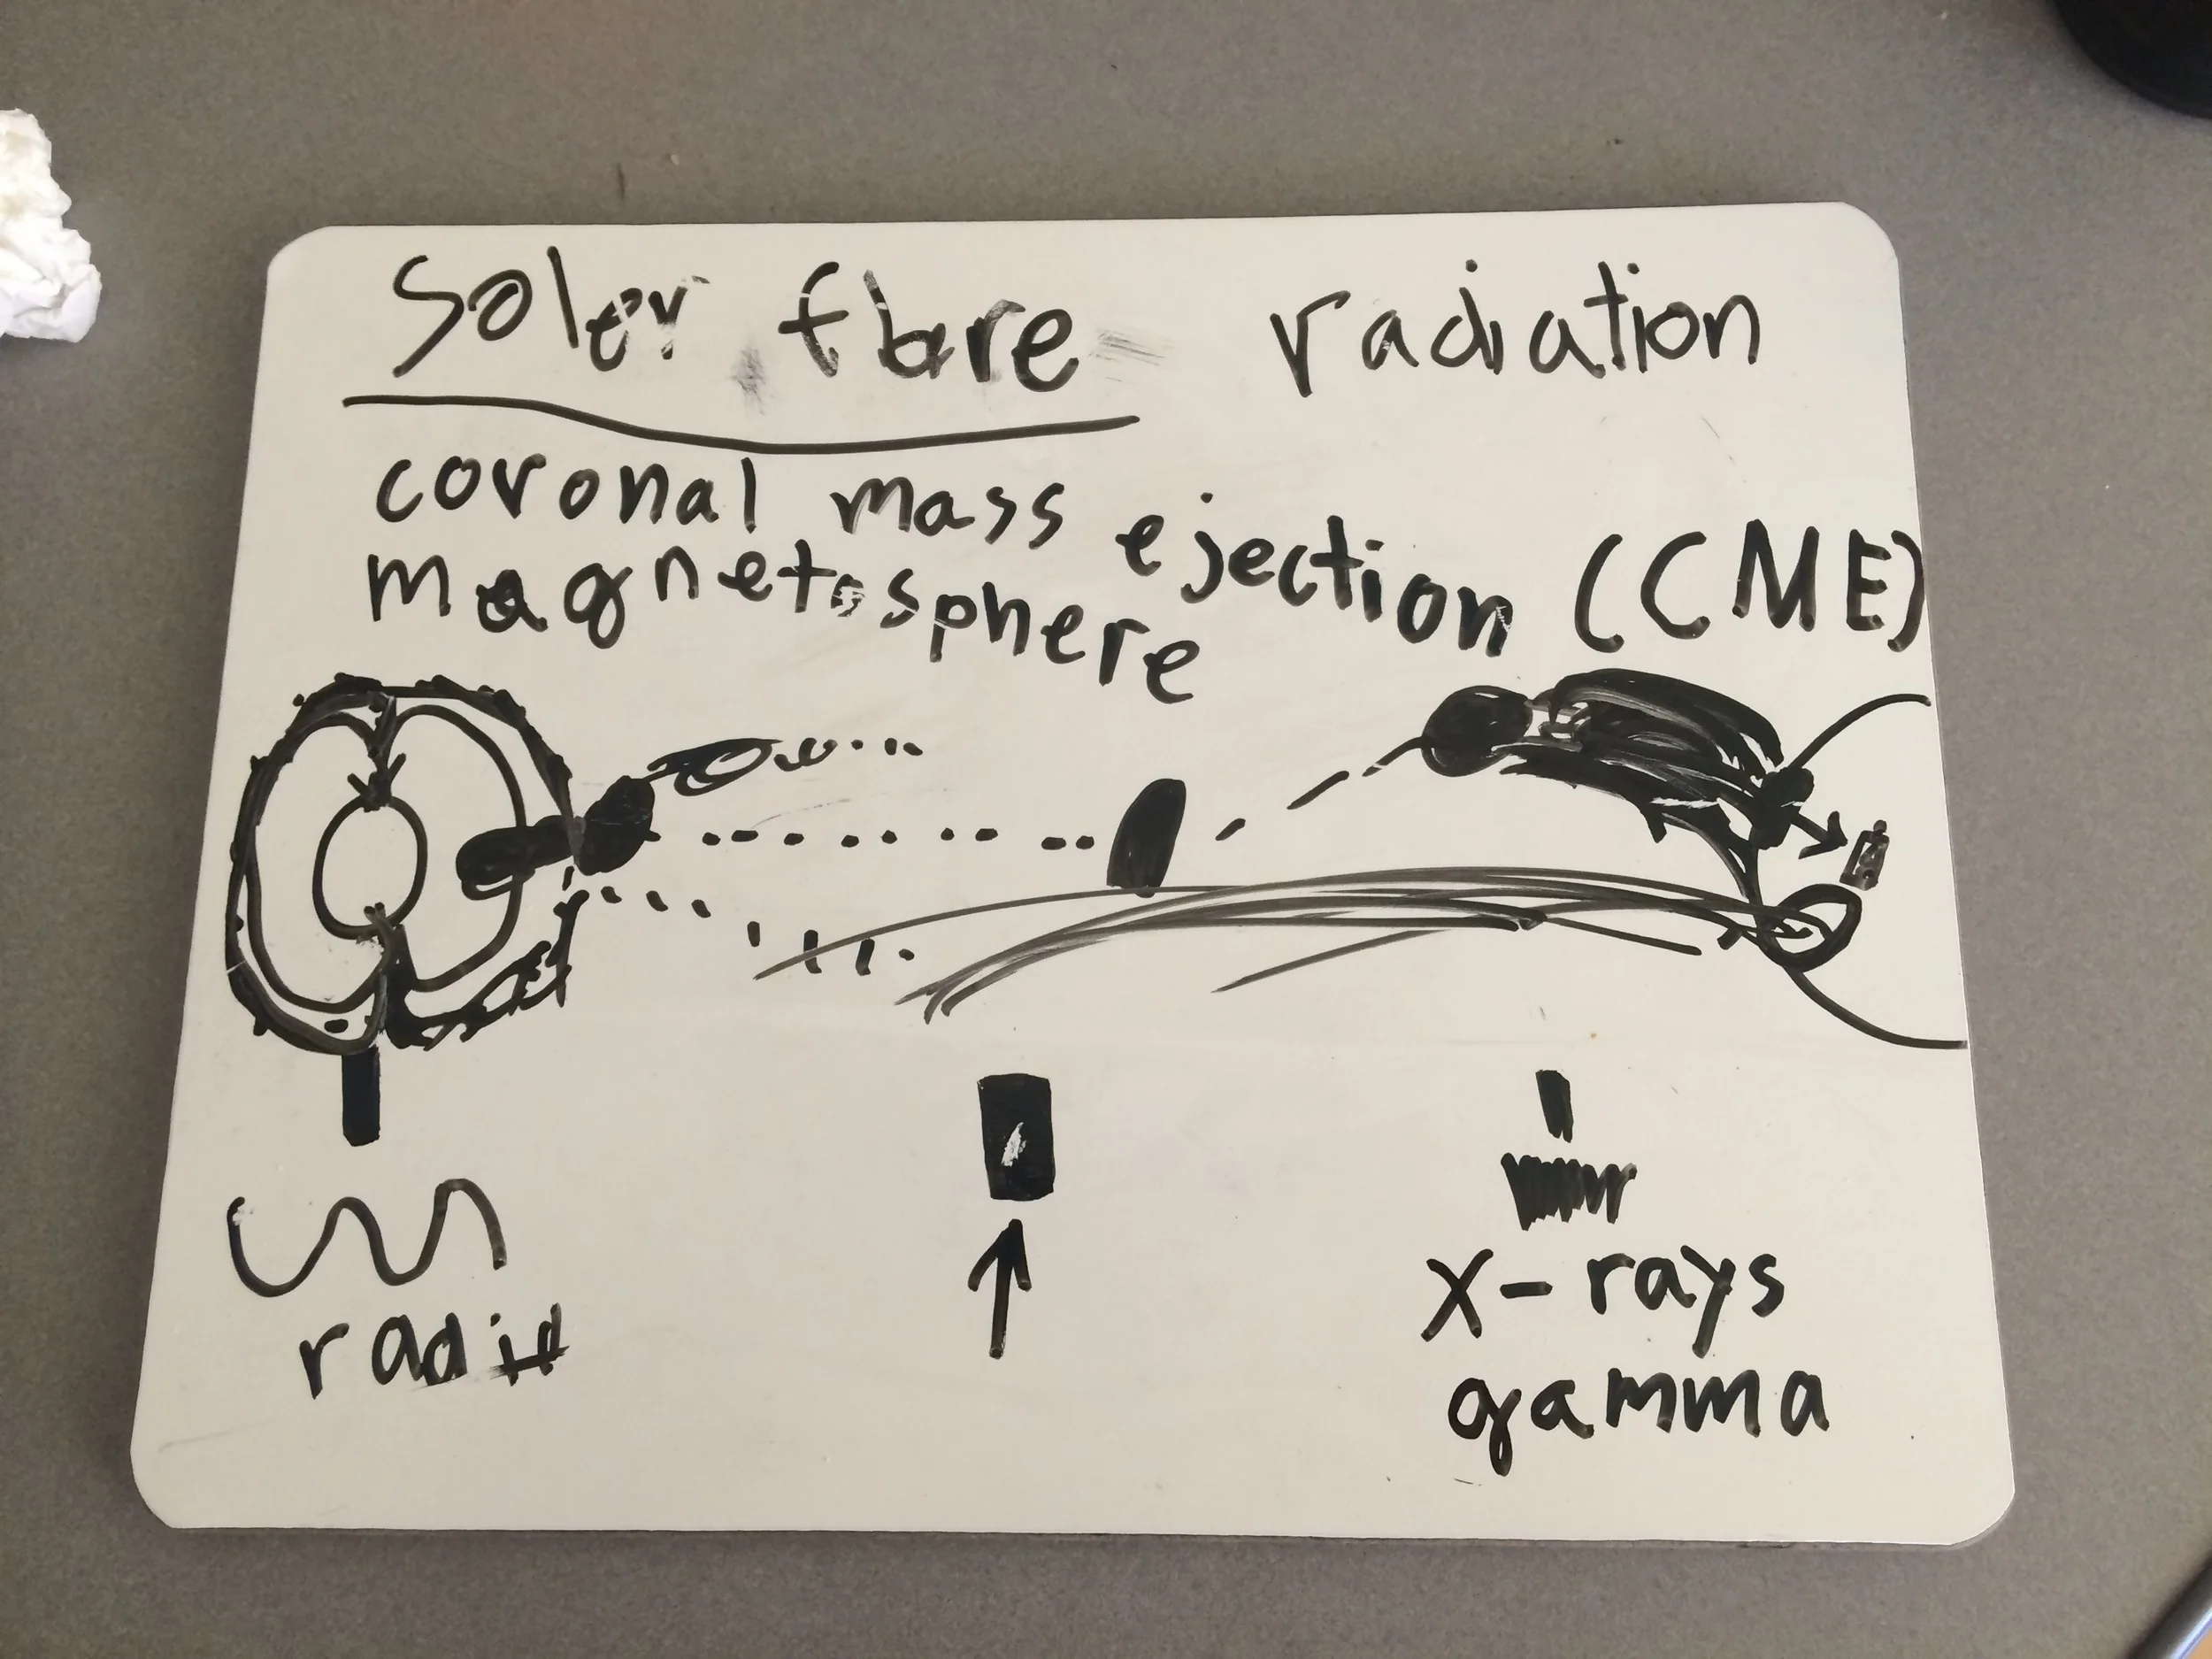 Soler flare radiation
coronal mass ejection (CME)
magnetosphere
radio
x-rays
gamma